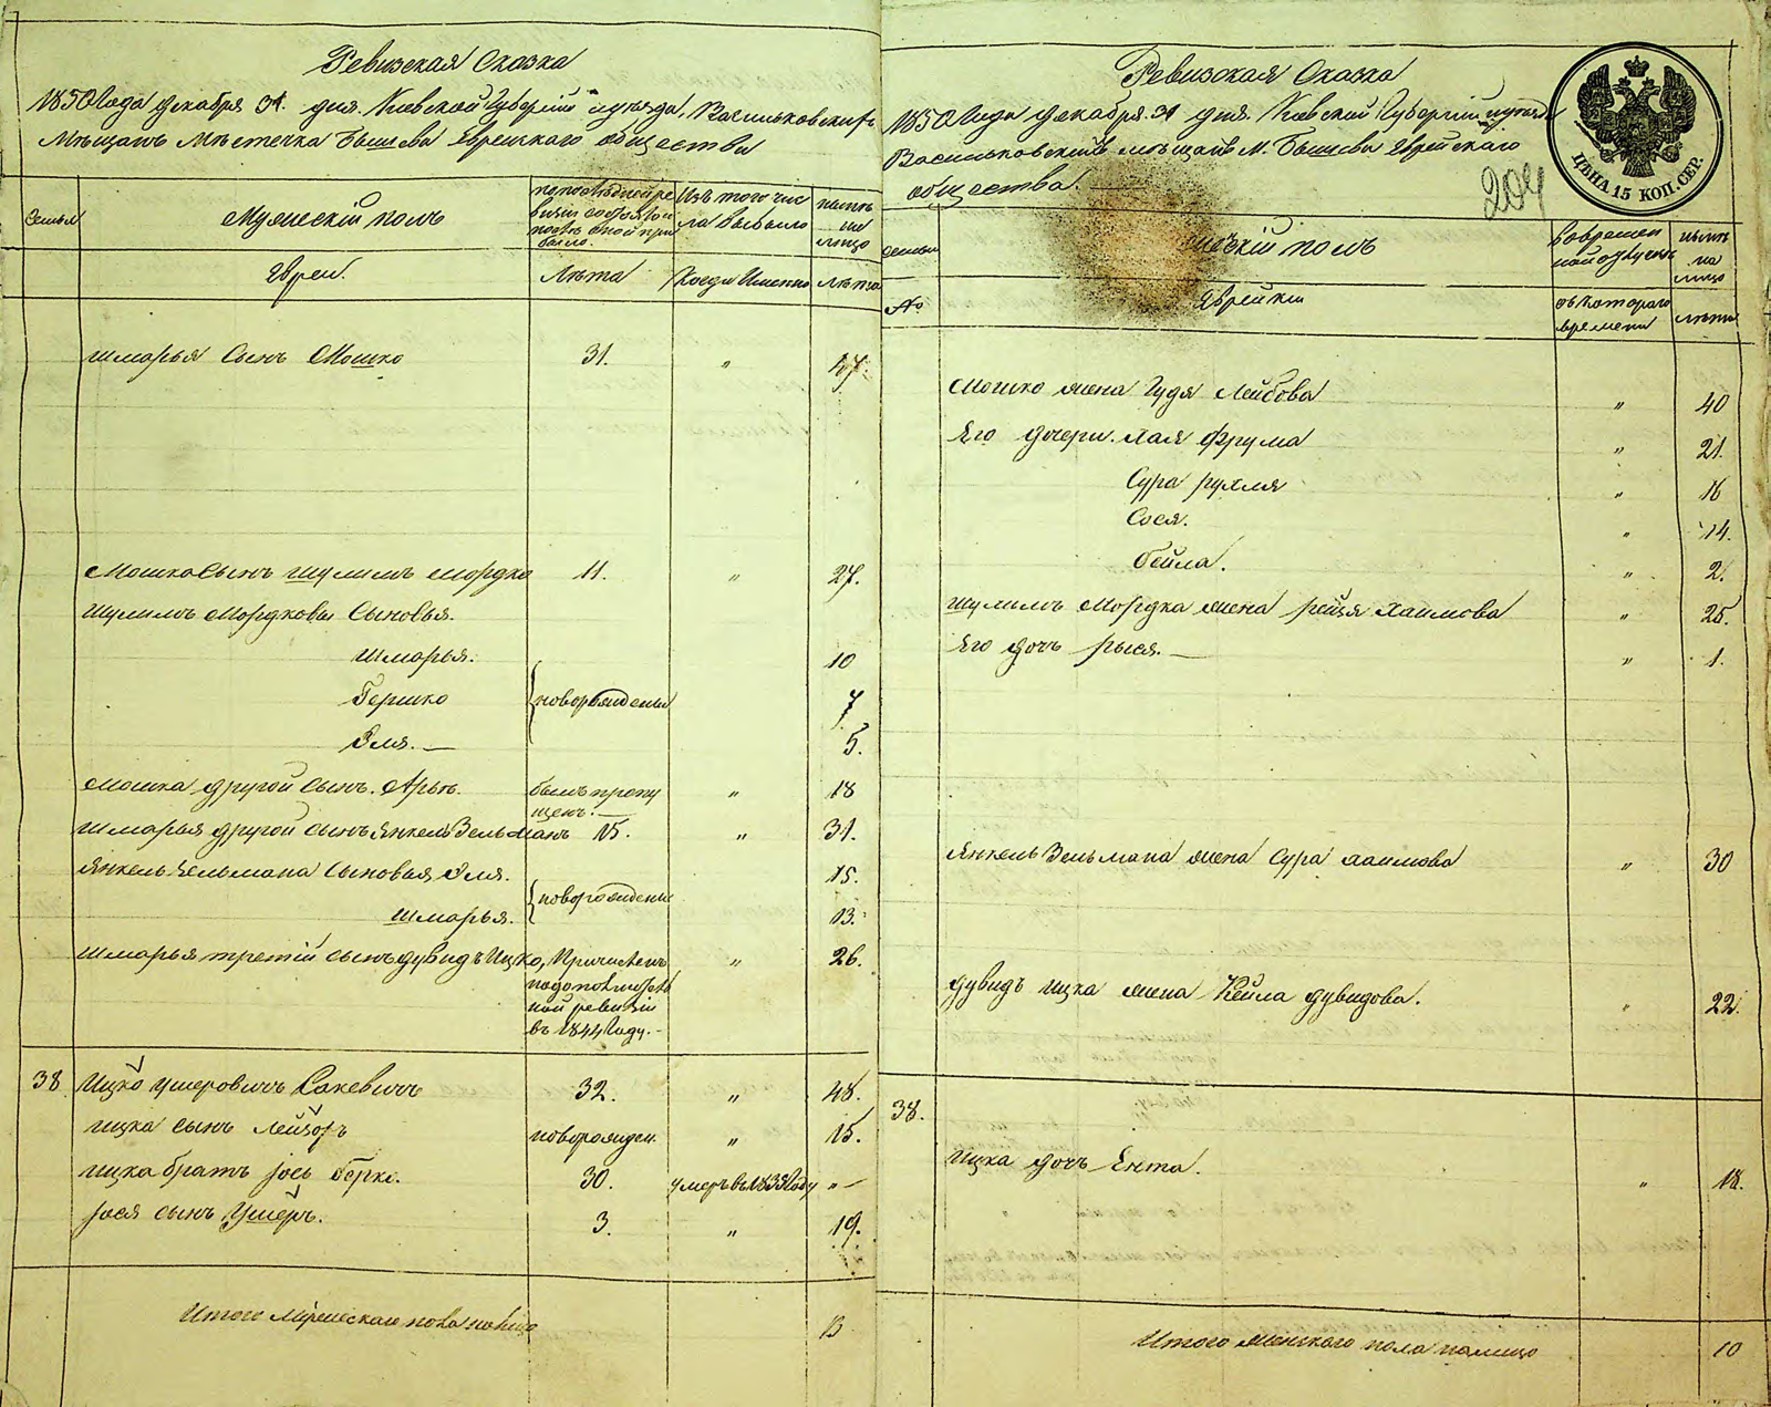 Ревизская Сказка
1850 Года декабря 31 дня. Киевской Губерніи и уѣзда, Васильковскихъ
Мѣщанъ Мѣстечка Бышева Еврейскаго общества
Семьи
Мужескій полъ
по последней ре
визіи состояло и
послѣ оной при
было.
Изъ того чис
ла выбыло
нынѣ
на
лицо
Евреи.
Лѣта
Когда Именно
лѣта
Шмарья Сынъ Мошко 31. " 47.
Мошка Сынъ Шулимъ Мордко 11. " 27.
Шулимъ Мордковы Сыновья.
Шмарья. 10
Гершко новорожденны 7
Эля. 5.
Мошка другой Сынъ. Арья. былъ пропу " 18
щенъ.
Шмарья другой Сынъ Янкель Зельманъ 15. " 31.
Янкель Зельмана Сыновья Эля. 15.
новорожденны
Шмарья. 13.
Шмарья третій Сынъ Дувидъ Ицко, Причисленъ " 26.
по дополнитель
ной ревизіи
въ 1844 Году.
38 Ицко Ушеровичъ Сакевичъ 32. " 48.
Ицка Сынъ Лейзоръ новорожден. " 15.
Ицка братъ Іось Берко. 30. умеръ въ 1835 Году "
Іося Сынъ Ушеръ. 3. " 19.
Итого Мужескаго пола на лицо 13
Ревизская Сказка
1850 Года декабря 31 дня. Киевской Губерніи и уѣзда
Васильковскихъ мѣщанъ М. Бышева Еврейскаго
общества.
204
ЦѢНА 15 КОП. СЕР.
Семьи
полъ
во времен
ной отлучкѣ
нынѣ
на
лицо
№
Еврейки
съ котораго
времени
лѣта
Мошко жена Гудя Лейбова " 40
Его дочери. Хая Фрума " 21.
Сура Рухля " 16
Сося. " 14.
Бейла. " 2.
Шулимъ Мордка жена Рейзя Хаимова " 25.
Его дочь Рыся. " 1.
Янкель Зельмана жена Сура Хаимова " 30
Дувидъ Ицка жена Кейла Дувидова. " 22.
38.
Ицка дочь Ента. " 18.
Итого женскаго пола на лицо 10